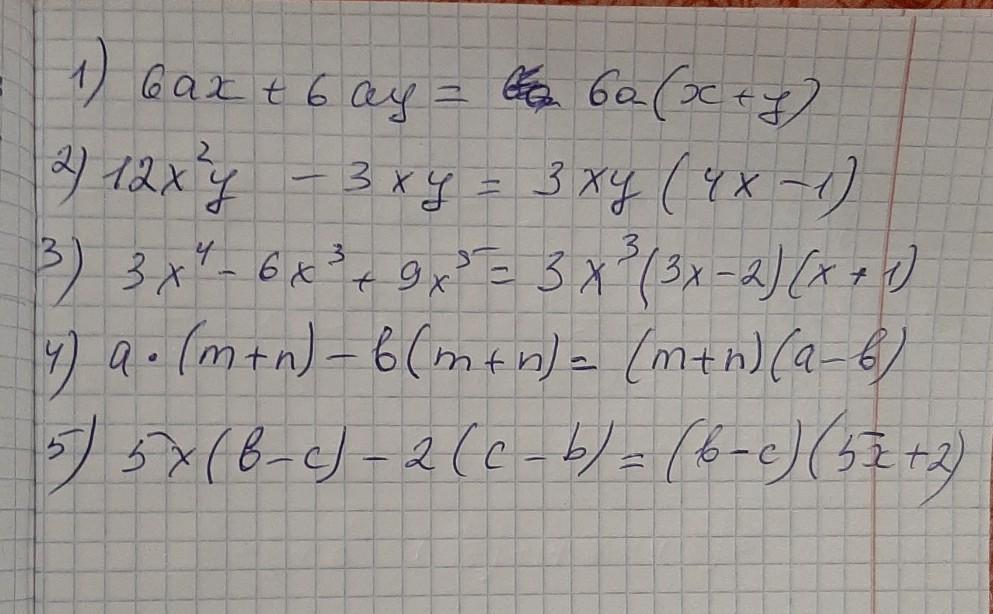 1) 6ax + 6ay = 6a(x+y)
2) 12x²y - 3xy = 3xy(4x-1)
3) 3x⁴ - 6x³ + 9x⁵ = 3x³(3x-2)(x+1)
4) a·(m+n) - b(m+n) = (m+n)(a-b)
5) 5x(b-c) - 2(c-b) = (b-c)(5x+2)